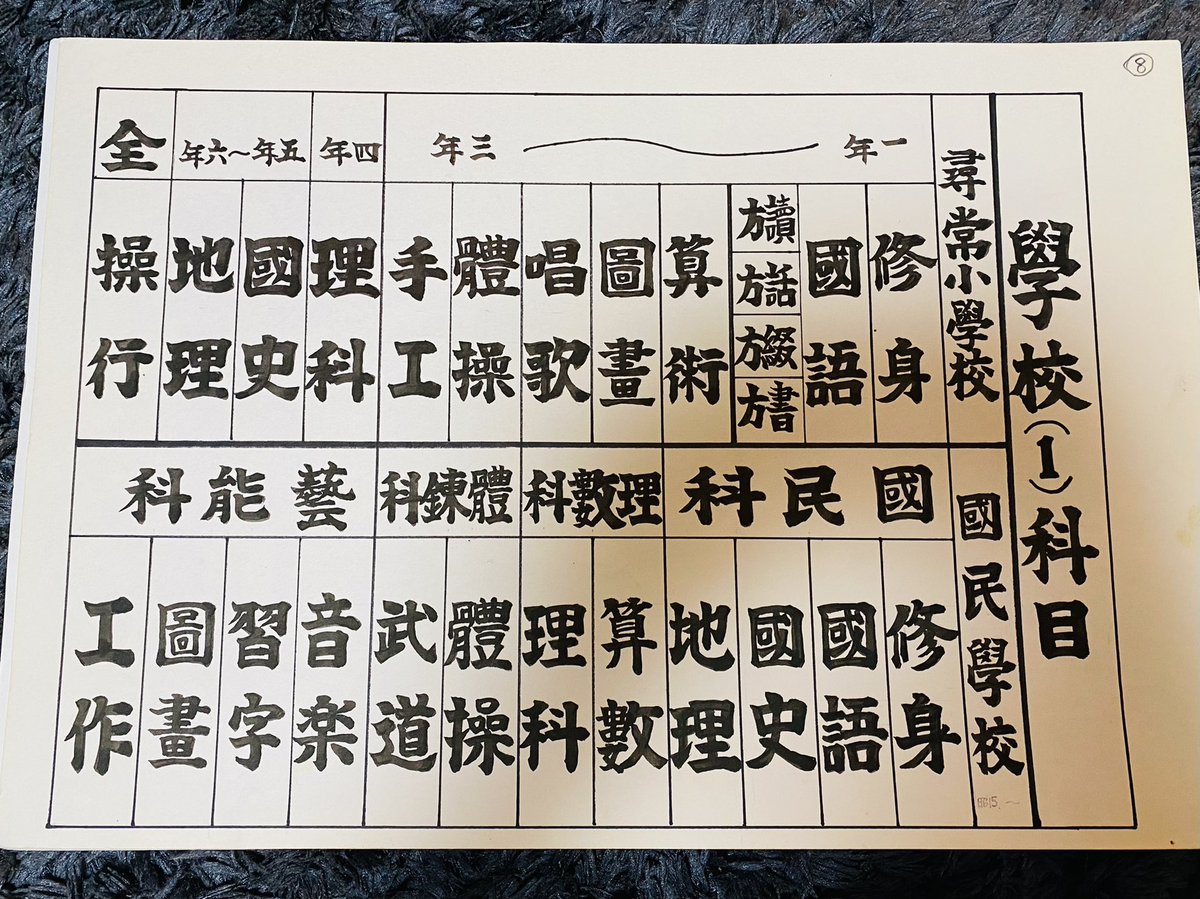 ⑧
學校(1)科目
尋常小學校
一年〜三年
修身
國語
讀方
話方
綴方
書方
算術
圖畫
唱歌
體操
手工
四年
理科
五年〜六年
國史
地理
全
操行
國民學校
國民科
修身
國語
國史
地理
理數科
算數
理科
體鍊科
體操
武道
藝能科
音楽
習字
圖畫
工作